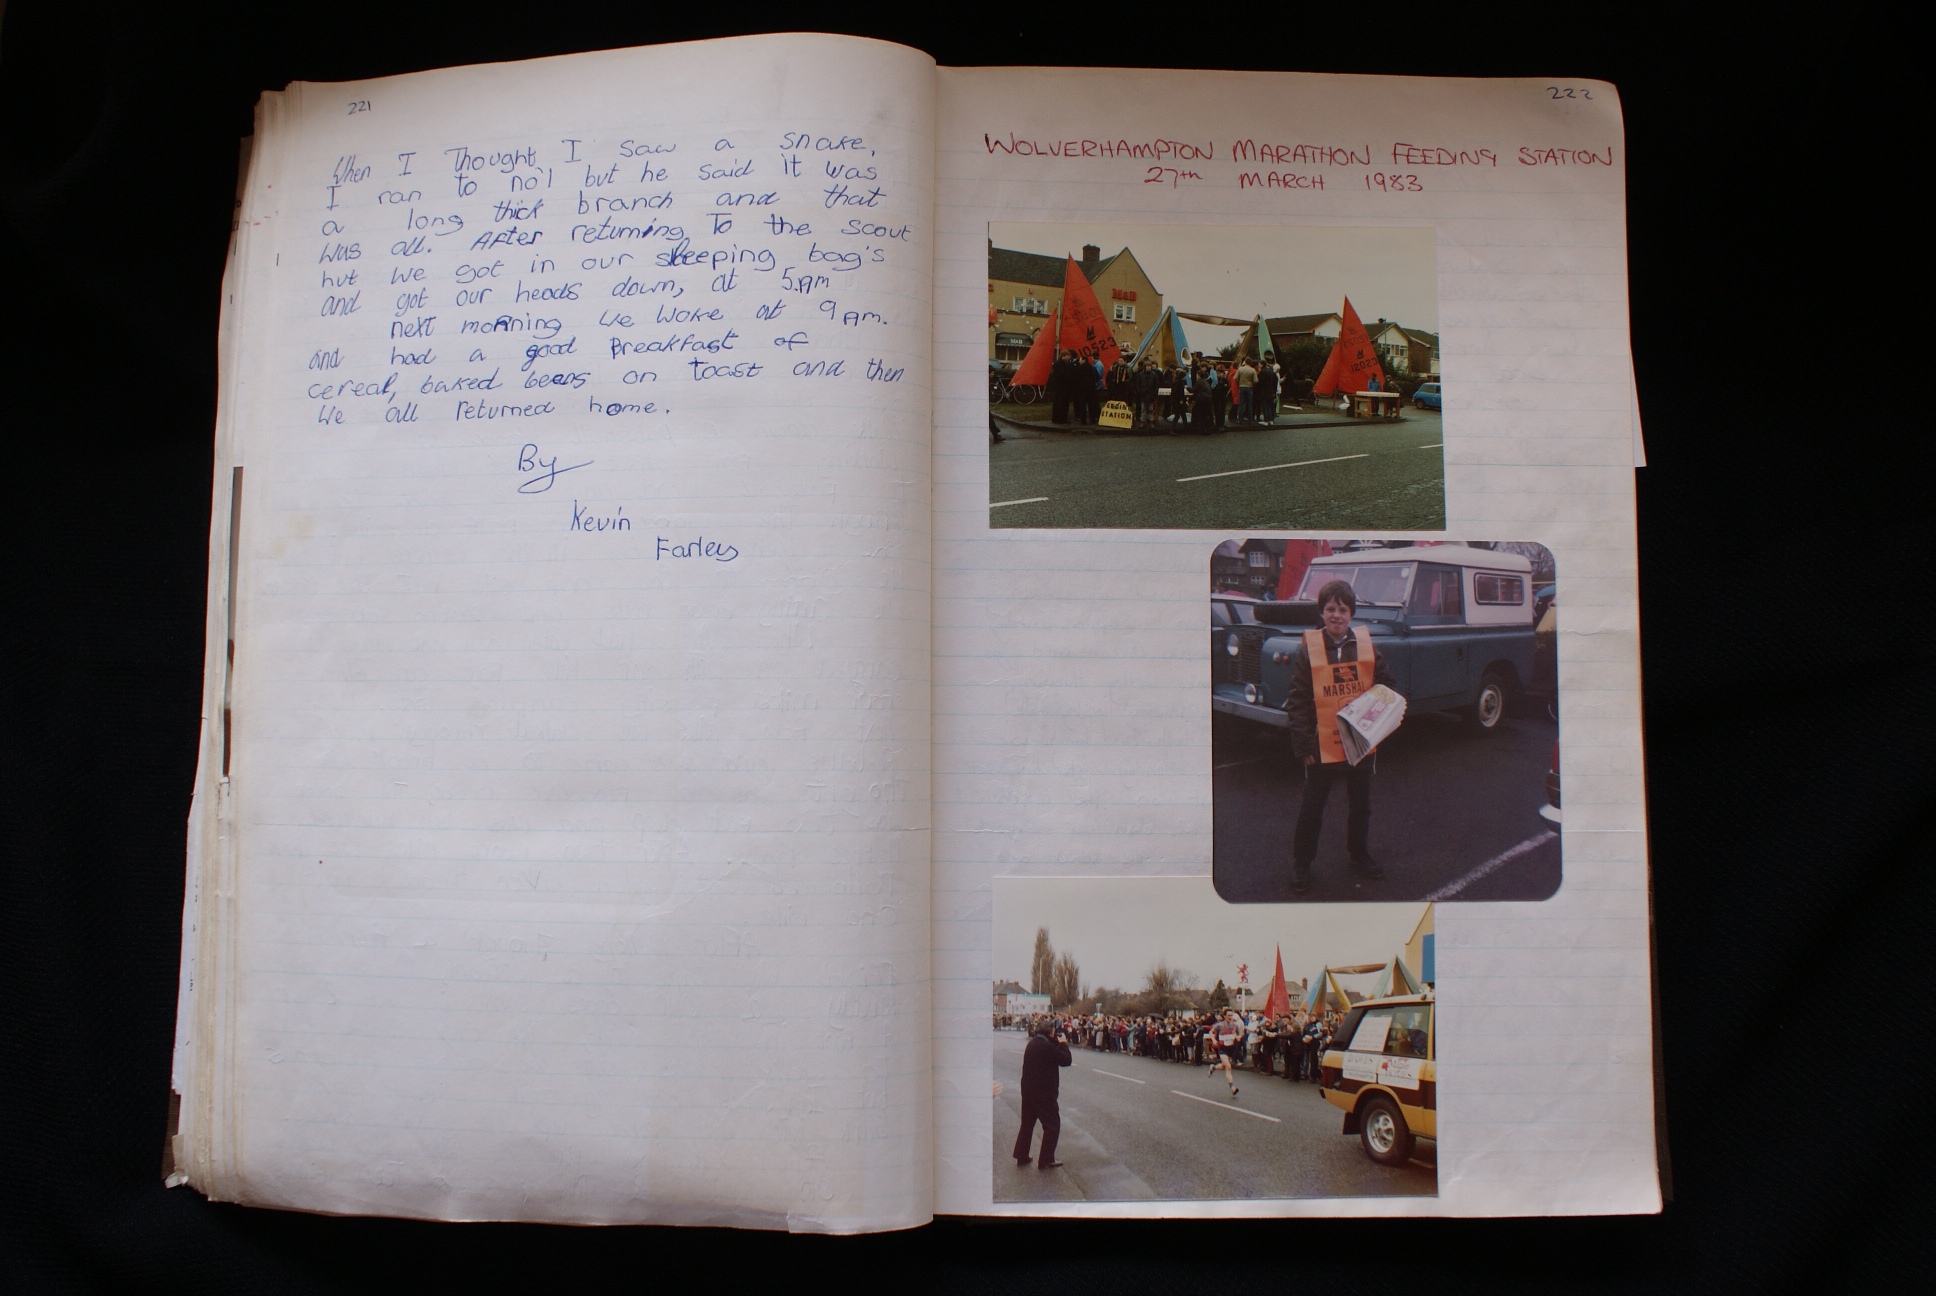 221
When I Thought I saw a snake,
I ran to no'l but he said it was
a long thick branch and that
was all. After returning To the scout
hut we got in our sleeping bag's
and got our heads down, at 5.am
next morning we woke at 9 Am.
and had a good Breakfast of
cereal, baked beans on toast and then
We all returned home.
By
Kevin
Farley
222
WOLVERHAMPTON MARATHON FEEDING STATION
27th MARCH 1983
M&B
10523
12023
STATION
MARSHAL